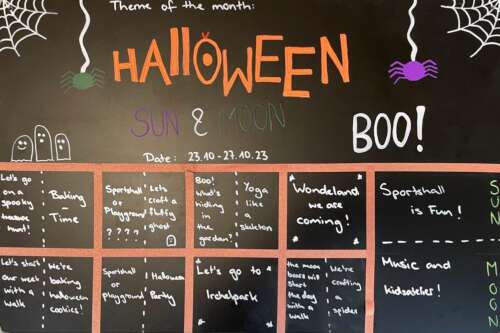 Theme of the month:
HALLOWEEN
SUN & MOON
BOO!
Date: 23.10 - 27.10.23
Let's go
on a
spooky
treasure
hunt!
Baking
- Time
Sportshall
or
Playground
? ? ? ?
Lets
craft a
fluffy
ghost
Boo!
what's
hiding
in
the
gardan?
Yoga
like
a
skeleton
Wondeland
we are
coming!
Sportshall
is Fun!
SUN
Let's start
our week
with a
walk
We're
baking
halloween
cookies!
Sportshall
or
playground
Halloween
Party
Let's go to
Irchelpark
the moon
bears will
Start
the day
with a
walk
We're
crafting
a
spider
Music and
kidsatelier!
MOON